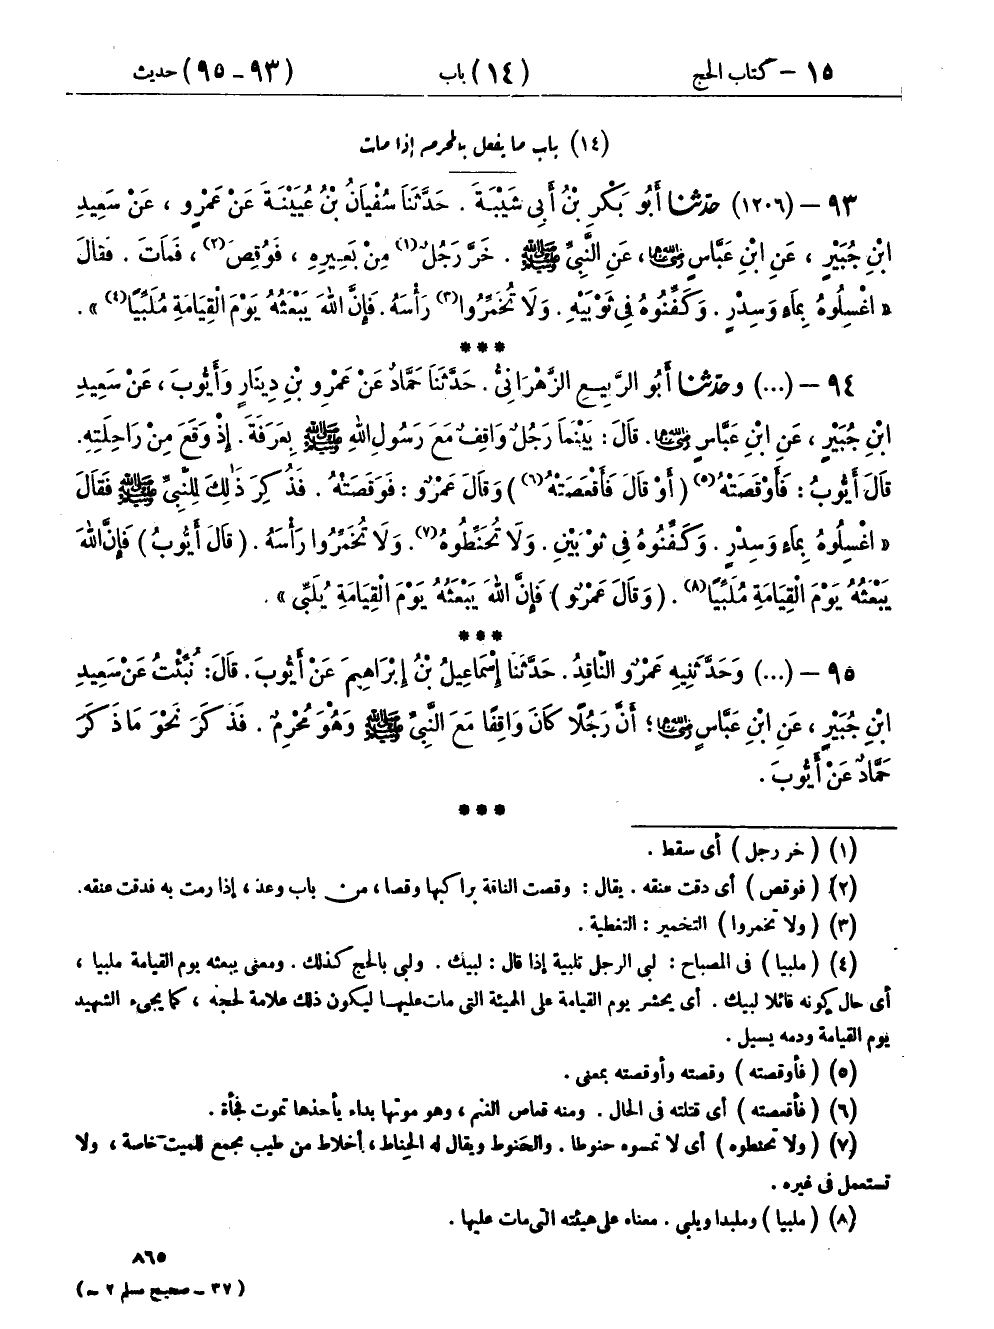 ١٥ – كتاب الحج (١٤) باب (٩٣ – ٩٥) حديث
(١٤) باب ما يفعل بالمحرم إذا مات
٩٣ – (١٢٠٦) حَدَّثَنَا أَبُو بَكْرِ بْنُ أَبِي شَيْبَةَ . حَدَّثَنَا سُفْيَانُ بْنُ عُيَيْنَةَ عَنْ عَمْرٍو ، عَنْ سَعِيدِ
ابْنِ جُبَيْرٍ ، عَنِ ابْنِ عَبَّاسٍ رضي الله عنهما، عَنِ النَّبِيِّ ﷺ . خَرَّ رَجُلٌ(١) مِنْ بَعِيرِهِ ، فَوُقِصَ(٢) ، فَمَاتَ . فَقَالَ
« اغْسِلُوهُ بِمَاءٍ وَسِدْرٍ . وَكَفِّنُوهُ فِي ثَوْبَيْهِ . وَلَا تُخَمِّرُوا(٣) رَأْسَهُ . فَإِنَّ اللهَ يَبْعَثُهُ يَوْمَ الْقِيَامَةِ مُلَبِّيًا(٤) » .
***
٩٤ – (...) وحَدَّثَنَا أَبُو الرَّبِيعِ الزَّهْرَانِيُّ . حَدَّثَنَا حَمَّادٌ عَنْ عَمْرِو بْنِ دِينَارٍ وَأَيُّوبَ ، عَنْ سَعِيدِ
ابْنِ جُبَيْرٍ ، عَنِ ابْنِ عَبَّاسٍ رضي الله عنهما . قَالَ : بَيْنَمَا رَجُلٌ وَاقِفٌ مَعَ رَسُولِ اللهِ ﷺ بِعَرَفَةَ . إِذْ وَقَعَ مِنْ رَاحِلَتِهِ .
قَالَ أَيُّوبُ : فَأَوْقَصَتْهُ(٥) ( أَوْ قَالَ فَأَقْعَصَتْهُ(٦) ) وَقَالَ عَمْرٌو : فَوَقَصَتْهُ . فَذُكِرَ ذَلِكَ لِلنَّبِيِّ ﷺ فَقَالَ
« اغْسِلُوهُ بِمَاءٍ وَسِدْرٍ . وَكَفِّنُوهُ فِي ثَوْبَيْنِ . وَلَا تُحَنِّطُوهُ(٧) . وَلَا تُخَمِّرُوا رَأْسَهُ . ( قَالَ أَيُّوبُ ) فَإِنَّ اللهَ
يَبْعَثُهُ يَوْمَ الْقِيَامَةِ مُلَبِّيًا(٨) . ( وَقَالَ عَمْرٌو ) فَإِنَّ اللهَ يَبْعَثُهُ يَوْمَ الْقِيَامَةِ يُلَبِّي » .
***
٩٥ – (...) وَحَدَّثَنِيهِ عَمْرٌو النَّاقِدُ . حَدَّثَنَا إِسْمَاعِيلُ بْنُ إِبْرَاهِيمَ عَنْ أَيُّوبَ . قَالَ : نُبِّئْتُ عَنْ سَعِيدِ
ابْنِ جُبَيْرٍ ، عَنِ ابْنِ عَبَّاسٍ رضي الله عنهما ؛ أَنَّ رَجُلًا كَانَ وَاقِفًا مَعَ النَّبِيِّ ﷺ وَهُوَ مُحْرِمٌ . فَذَكَرَ نَحْوَ مَا ذَكَرَ
حَمَّادٌ عَنْ أَيُّوبَ .
***
(١) ( خر رجل ) أى سقط .
(٢) ( فوقص ) أى دقت عنقه . يقال : وقصت الناقة براكبها وقصا ، من باب وعد ، إذا رمت به فدقت عنقه .
(٣) ( ولا تخمروا ) التخمير : التغطية .
(٤) ( ملبيا ) فى المصباح : لبى الرجل تلبية إذا قال : لبيك . ولبى بالحج كذلك . ومعنى يبعثه يوم القيامة ملبيا ،
أى حال كونه قائلا لبيك . أى يحشر يوم القيامة على الهيئة التى مات عليها ليكون ذلك علامة لحجه ، كما يجىء الشهيد
يوم القيامة ودمه يسيل .
(٥) ( فأوقصته ) وقصته وأوقصته بمعنى .
(٦) ( فأقعصته ) أى قتلته فى الحال . ومنه قعاص الغنم ، وهو موتها بداء يأخذها تموت فجأة .
(٧) ( ولا تحنطوه ) أى لا تمسوه حنوطا . والحنوط ويقال له الحناط ، أخلاط من طيب تجمع للميت خاصة ، ولا
تستعمل فى غيره .
(٨) ( ملبيا ) وملبدا ويلبى . معناه على هيئته التى مات عليها .
٨٦٥
( ٣٧ – صحيح مسلم ٢ – )